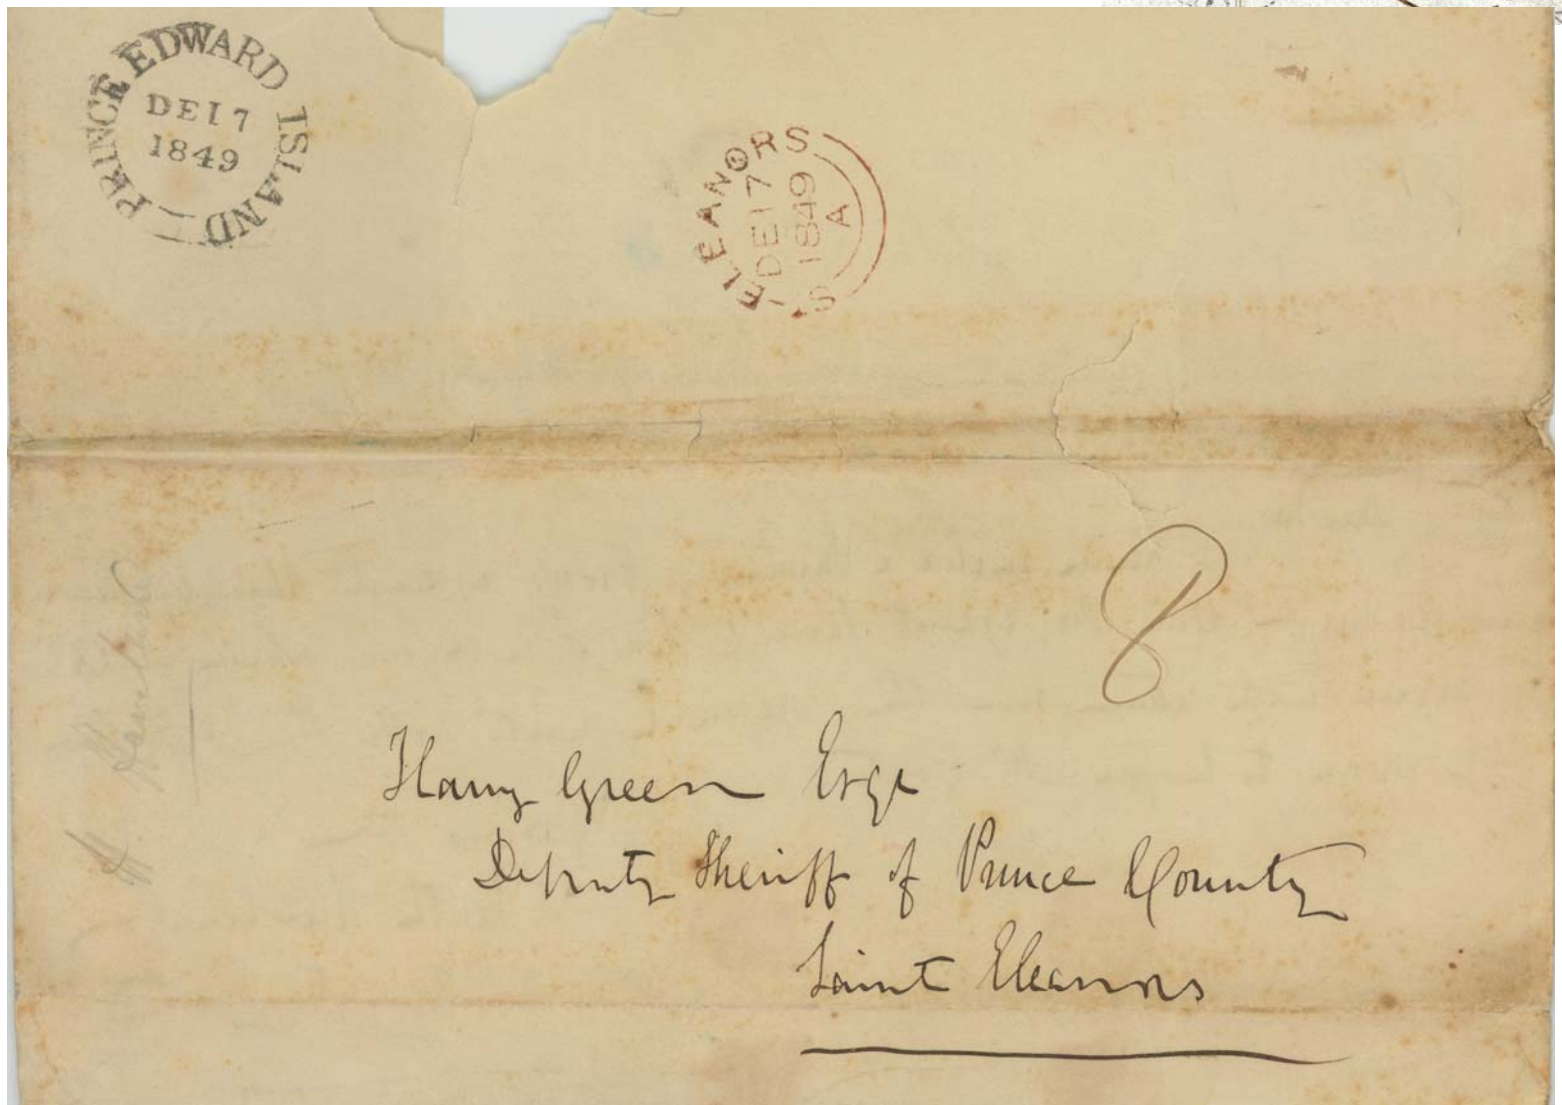 PRINCE EDWARD ISLAND
DE 17
1849
ST ELEANORS
DE 17
1849
A
8
Harry Green Esqr
Deputy Sheriff of Prince County
Saint Eleanors